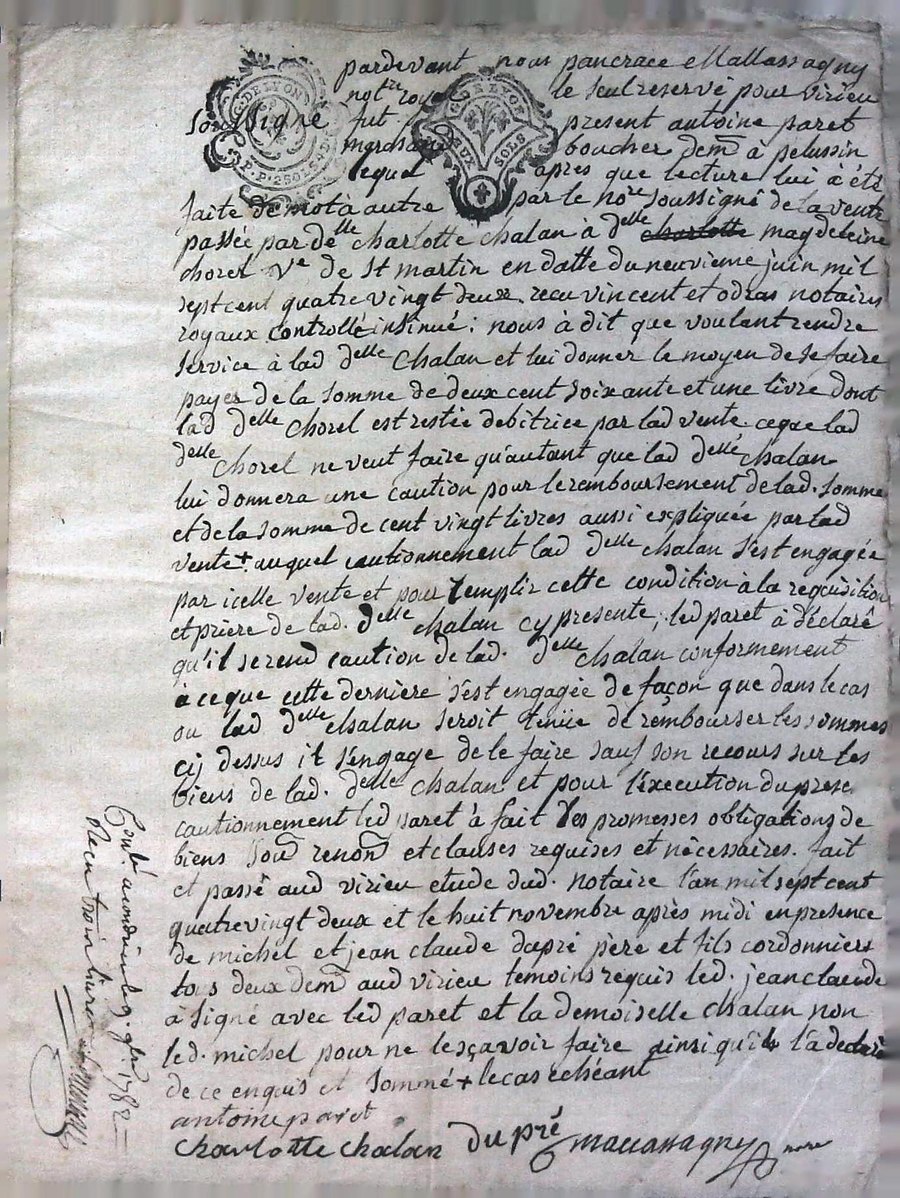 pardevant nous pancrace Mallassagny
notre roy le seul reservé pour virieu
soussigné fut present antoine paret
marchand boucher demt a pelussin
lequel après que lecture lui à été
faite de mot a autre par le nore soussigné de la vente
passée par delle charlotte chalan à delle charlotte magdeleine
chorel ve de St martin en datte du neuvieme juin mil
sept cent quatre vingt deux recu vincent et odras notaires
royaux controllé insinué ; nous à dit que voulant rendre
service à lad delle Chalan et lui donner le moyen de se faire
payer de la somme de deux cent soixante et une livre dont
lad delle Chorel est restée debitrice par lad vente ce que lad
delle Chorel ne veut faire qu'autant que lad delle chalan
lui donnera une caution pour le remboursement de lad. somme
et de la somme de cent vingt livres aussi expliquée par lad
vente + auquel cautionnement lad delle chalan s'est engagée
par icelle vente et pour remplir cette condition à la requisition
et prière de lad. delle chalan cy presente ; led paret à déclaré
qu'il se rend caution de lad. delle chalan conformement
a ce que cette derniere s'est engagée de façon que dans le cas
ou lad delle chalan seroit tenüe de rembourser les sommes
cy dessus il s'engage de le faire sauf son recours sur les
biens de lad. delle chalan et pour l'execution du prest
cautionnement led paret à fait les promesses obligations de
biens soum renon et clauses requises et nécessaires. fait
et passé aud virieu etude dud. notaire l'an mil sept cent
quatre vingt deux et le huit novembre après midi en presence
de michel et jean claude dupré père et fils cordonniers
tous deux demt aud virieu temoins requis led. jean claude
a signé avec led paret et la demoiselle chalan non
led. michel pour ne le sçavoir faire ainsi qu'il l'a declaré
de ce enquis et sommé + le cas échéant
antoine paret
charlotte chalan dupré mallassagny nore
G. DE LYON
P.P. 250
G. DE LYON
DEUX SOLS
Conté a condrieu le 9. 9bre 1782
Recu trois livres